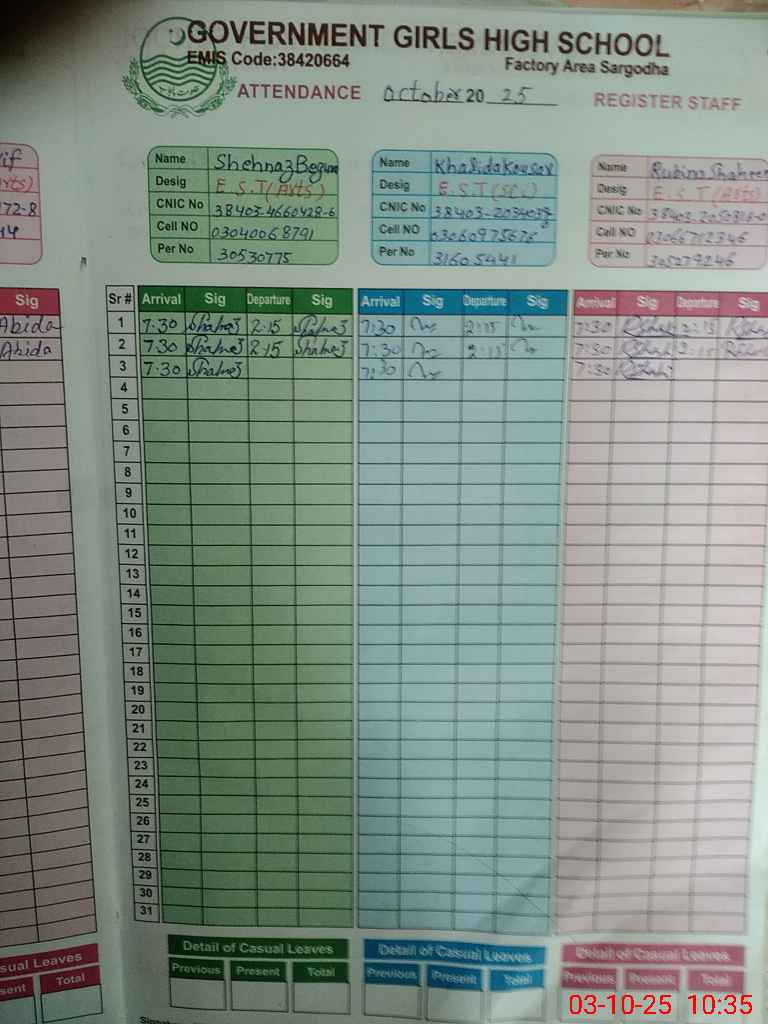 GOVERNMENT GIRLS HIGH SCHOOL
EMIS Code:38420664
Factory Area Sargodha
ATTENDANCE October 2025 REGISTER STAFF
Name Shehnaz Begum
Desig E.S.T(Arts)
CNIC No 38403-4660428-6
Cell NO 03040068791
Per No 30530775
Name Khalida Kousar
Desig E.S.T(Sci)
CNIC No
Cell NO 03060975678
Per No 31605441
Name Rubina Shaheen
Desig E.S.T(Arts)
CNIC No
Cell NO
Per No
if
rts)
172-8
Sig
Abida
Abida
Sr # Arrival Sig Departure Sig Arrival Sig Departure Sig Arrival Sig Departure Sig
1 7:30 Shahnaz 2:15 Shahnaz 7:30 2:15 7:30 2:15
2 7:30 Shahnaz 2:15 Shahnaz 7:30 2:15 7:30 2:15
3 7:30 Shahnaz 7:30 7:30
4
5
6
7
8
9
10
11
12
13
14
15
16
17
18
19
20
21
22
23
24
25
26
27
28
29
30
31
sual Leaves
sent Total
Detail of Casual Leaves
Previous Present Total
Detail of Casual Leaves
Previous Present Total
Detail of Casual Leaves
Previous Present Total
03-10-25 10:35